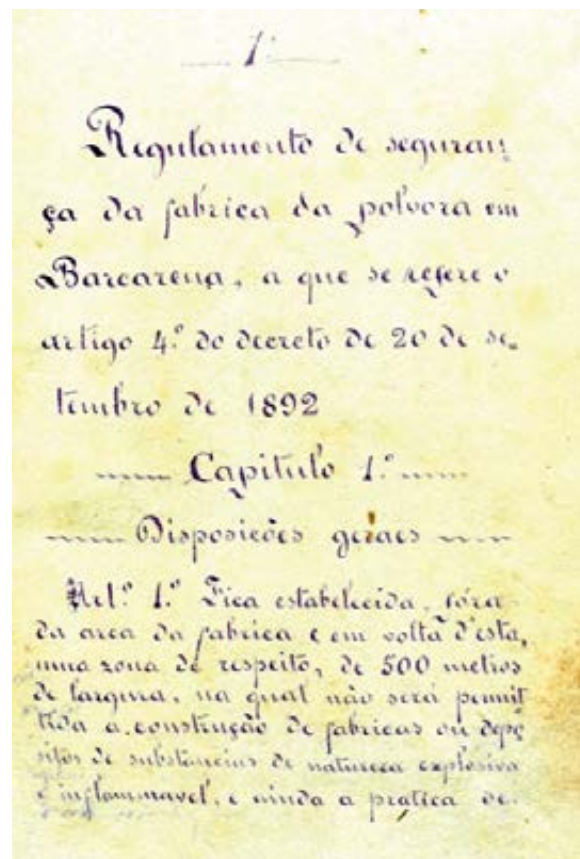 1.º
Regulamento de seguran-
ça da fabrica da polvora em
Barcarena, a que se refere o
artigo 4.º do decreto de 20 de se-
tembro de 1892
Capitulo 1.º
Disposições geraes
Art.º 1.º Fica estabelecida, fóra
da area da fabrica e em volta d'esta,
uma zona de respeito, de 500 metros
de largura, na qual não será permit
tida a construcção de fabricas ou depo
sitos de substancias de natureza explosiva
e inflammavel, e ainda a pratica de